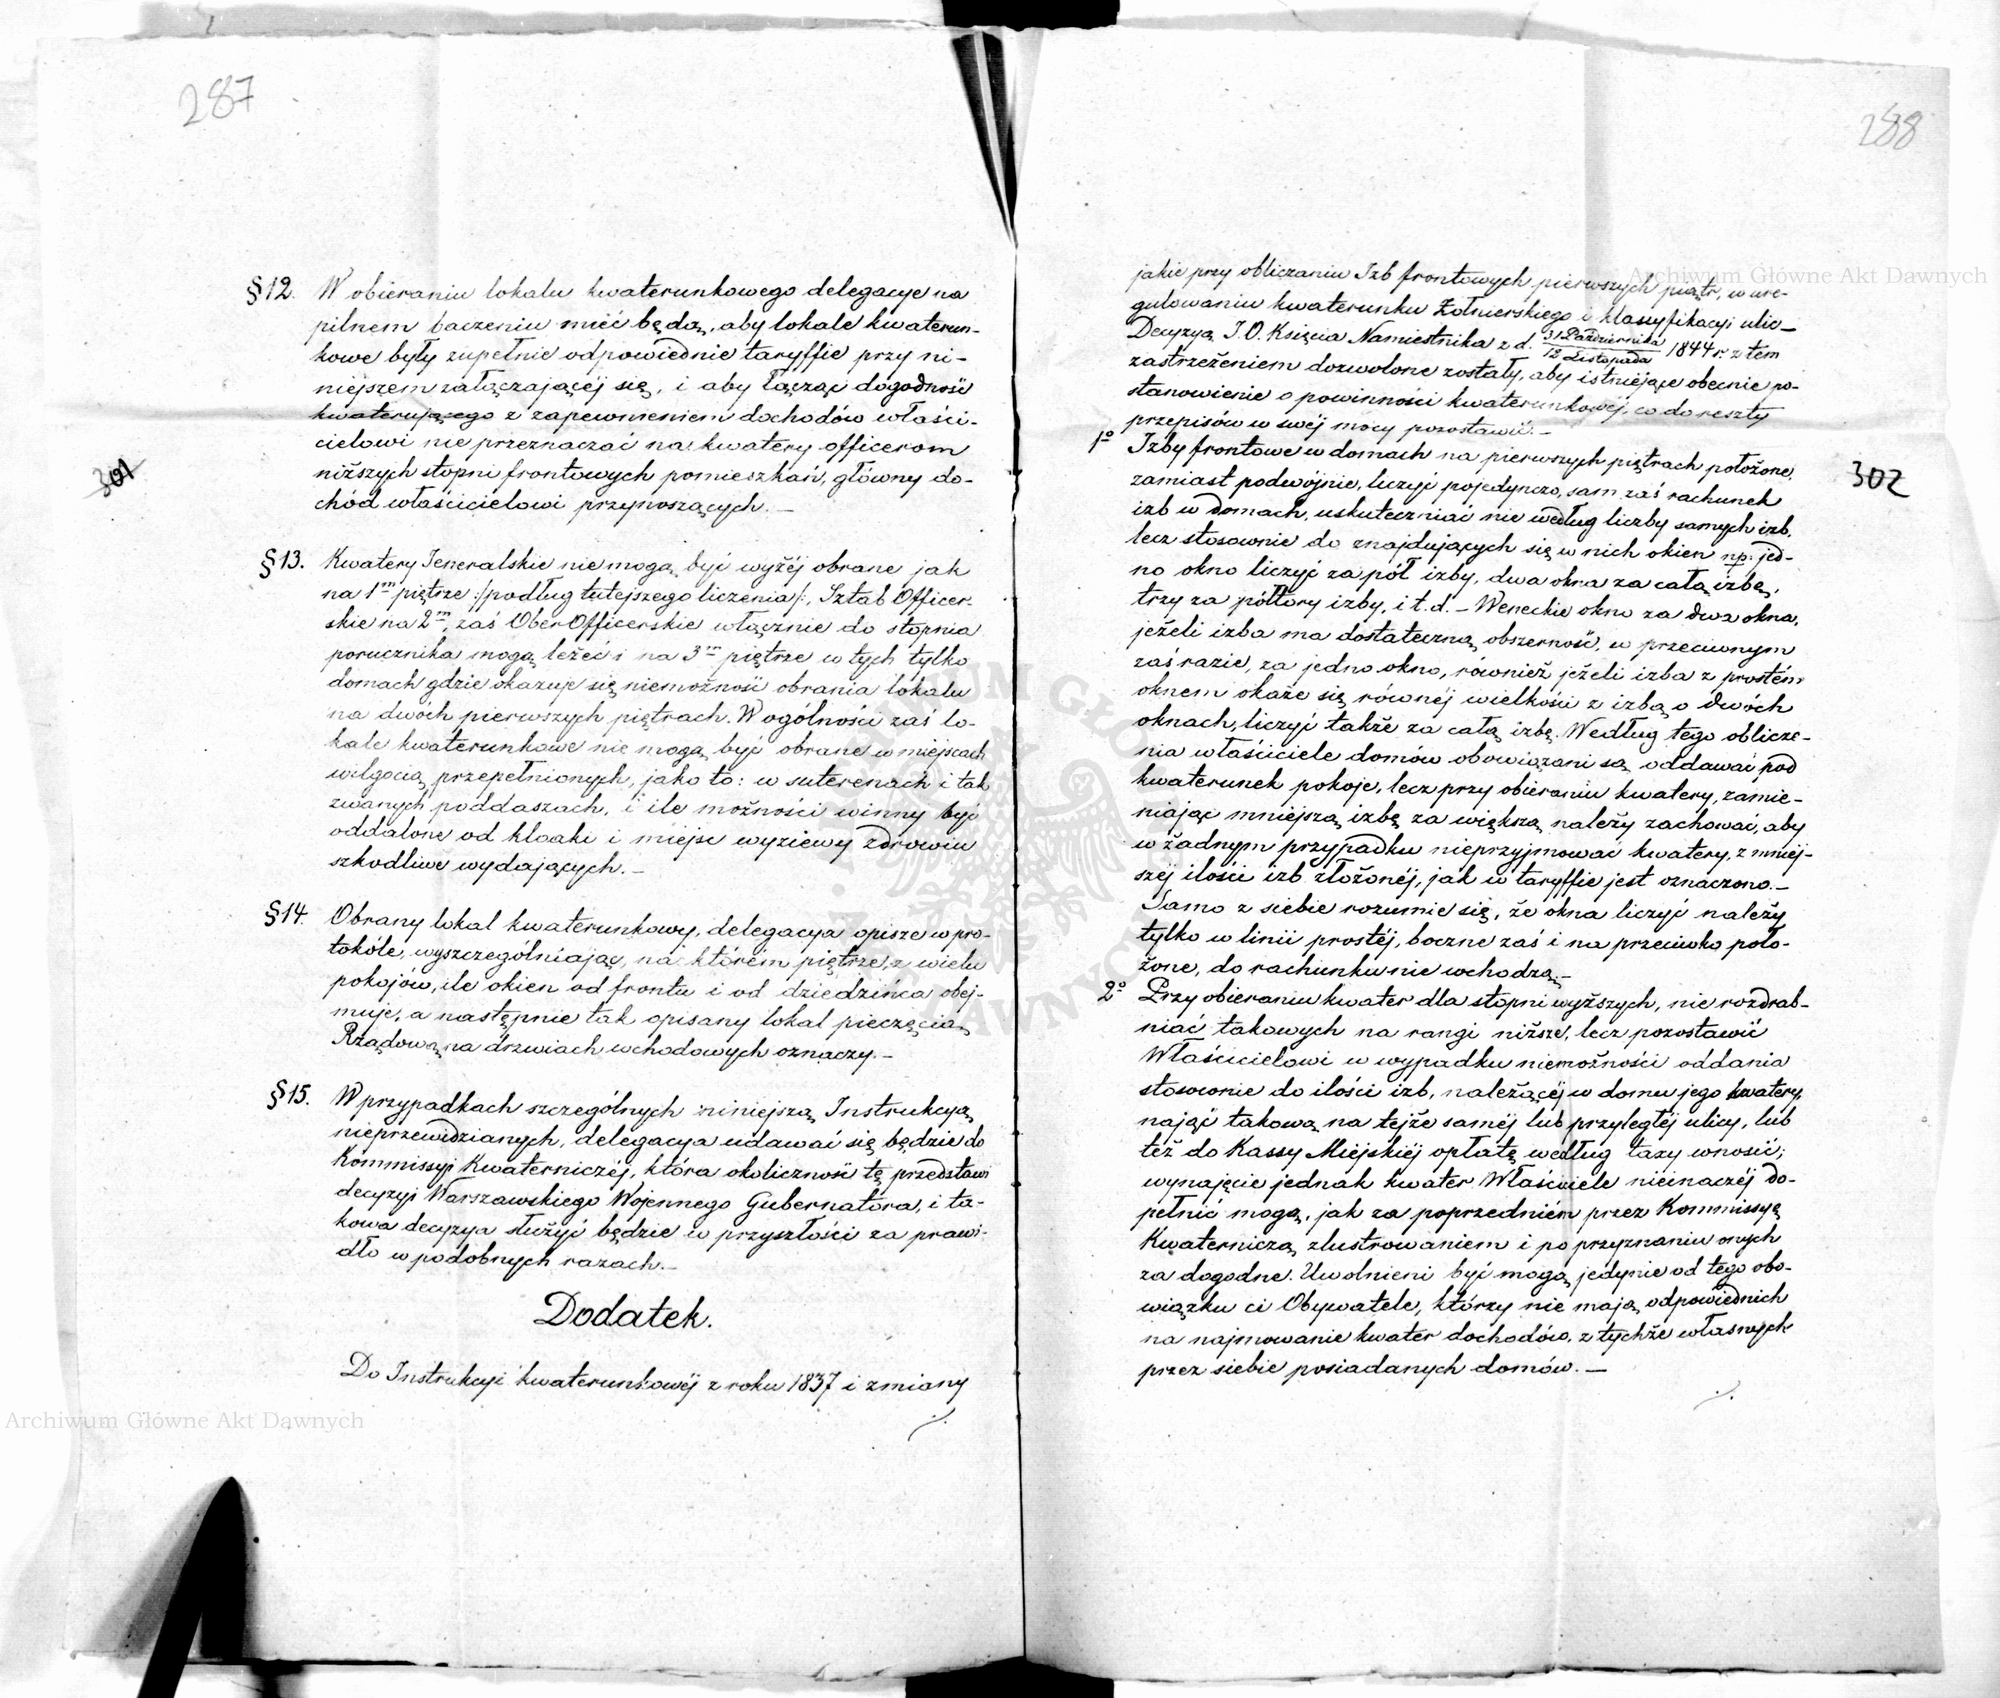 287
§12. W obieraniu lokalu kwaterunkowego delegacye na
pilnem baczeniu mieć będą, aby lokale kwaterun-
kowe były zupełnie odpowiednie taryffie przy ni-
niejszem załączającéj się, i aby łącząc dogodność
kwaterującego z zapewnieniem dochodów właści-
cielowi nie przeznaczać na kwatery officerom
niższych stopni frontowych pomieszkań, główny do-
chód właścicielowi przynoszących. —
301
§13. Kwatery Jeneralskie nie mogą być wyżéj obrane jak
na 1m piętrze :/podług tutejszego liczenia/:, Sztab Officer-
skie na 2m, zaś Ober Officerskie włącznie do stopnia
porucznika mogą leżeć i na 3m piętrze w tych tylko
domach gdzie okazuje się niemożność obrania lokalu
na dwóch pierwszych piętrach. W ogólności zaś lo-
kale kwaterunkowe nie mogą być obrane w miejscach
wilgocią przepełnionych, jako to: w suterenach i tak
zwanych poddaszach, i ile możności winny być
oddalone od kloaki i miejsc wyziewy zdrowiu
szkodliwe wydających. —
§14. Obrany lokal kwaterunkowy, delegacya opisze w pro-
tokóle, wyszczególniając, na którém piętrze, z wielu
pokojów, ile okien od frontu i od dziedzińca obej-
muje, a następnie tak opisany lokal pieczęcią
Rządową na drzwiach wchodowych oznaczy. —
§15. W przypadkach szczególnych niniejszą Instrukcyą
nieprzewidzianych, delegacya udawać się będzie do
Kommissyi Kwaterniczéj, która okoliczność tę przedstawi
decyzyi Warszawskiego Wojennego Gubernatora, i ta-
kowa decyzya służyć będzie w przyszłości za prawi-
dło w podobnych razach. —
Dodatek.
Do Instrukcyi kwaterunkowéj z roku 1837 i zmiany
./.
288
jakie przy obliczaniu Izb frontowych pierwszych piątr, w ure-
gulowaniu kwaterunku Żołnierskiego i klassyfikacyi ulic —
Decyzyą J. O. Księcia Namiestnika z d. 31 Października/12 Listopada 1844 r. z tem
zastrzeżeniem dozwolone zostały, aby istniejące obecnie po-
stanowienie o powinności kwaterunkowéj, co do reszty
przepisów w swéj mocy pozostawić. —
1° Izby frontowe w domach na pierwszych piętrach położone,
zamiast podwójnie, liczyć pojedynczo, sam zaś rachunek
izb w domach, uskuteczniać nie według liczby samych izb,
lecz stosownie do znajdujących się w nich okien np: jed-
no okno liczyć za pół izby, dwa okna za całą izbę,
trzy za półtory izby, i t. d. — Weneckie okno za dwa okna,
jeżeli izba ma dostateczną obszerność, w przeciwnym
zaś razie, za jedno okno, również jeżeli izba z prostém
oknem okaże się równéj wielkości z izbą o dwóch
oknach, liczyć także za całą izbę. Według tego oblicze-
nia właściciele domów obowiązani są oddawać pod
kwaterunek pokoje, lecz przy obieraniu kwatery, zamie-
niając mniejszą izbę za większą należy zachować, aby
w żadnym przypadku nieprzyjmować kwatery, z mniéj-
széj ilości izb złożonéj, jak w taryffie jest oznaczono. —
Samo z siebie rozumie się, że okna liczyć należy
tylko w linii prostéj, boczne zaś i na przeciwko poło-
żone, do rachunku nie wchodzą. —
302
2° Przy obieraniu kwater dla stopni wyższych, nie rozdrab-
niać takowych na rangi niższe, lecz pozostawić
Właścicielowi w wypadku niemożności oddania
stosownie do ilości izb, należącéj w domu jego kwatery,
nająć takową na tejże saméj lub przyległéj ulicy, lub
też do Kassy Miejskiéj opłatę według taxy wnosić;
wynajęcie jednak kwater Właściciele nieinaczéj do-
pełnić mogą, jak za poprzedniém przez Kommissyę
Kwaterniczą zlustrowaniem i po przyznaniu onych
za dogodne. Uwolnieni być mogą jedynie od tego obo-
wiązku ci Obywatele, którzy nie mają odpowiednich
na najmowanie kwater dochodów, z tychże własnych
przez siebie posiadanych domów. —
./.
Archiwum Główne Akt Dawnych
Archiwum Główne Akt Dawnych